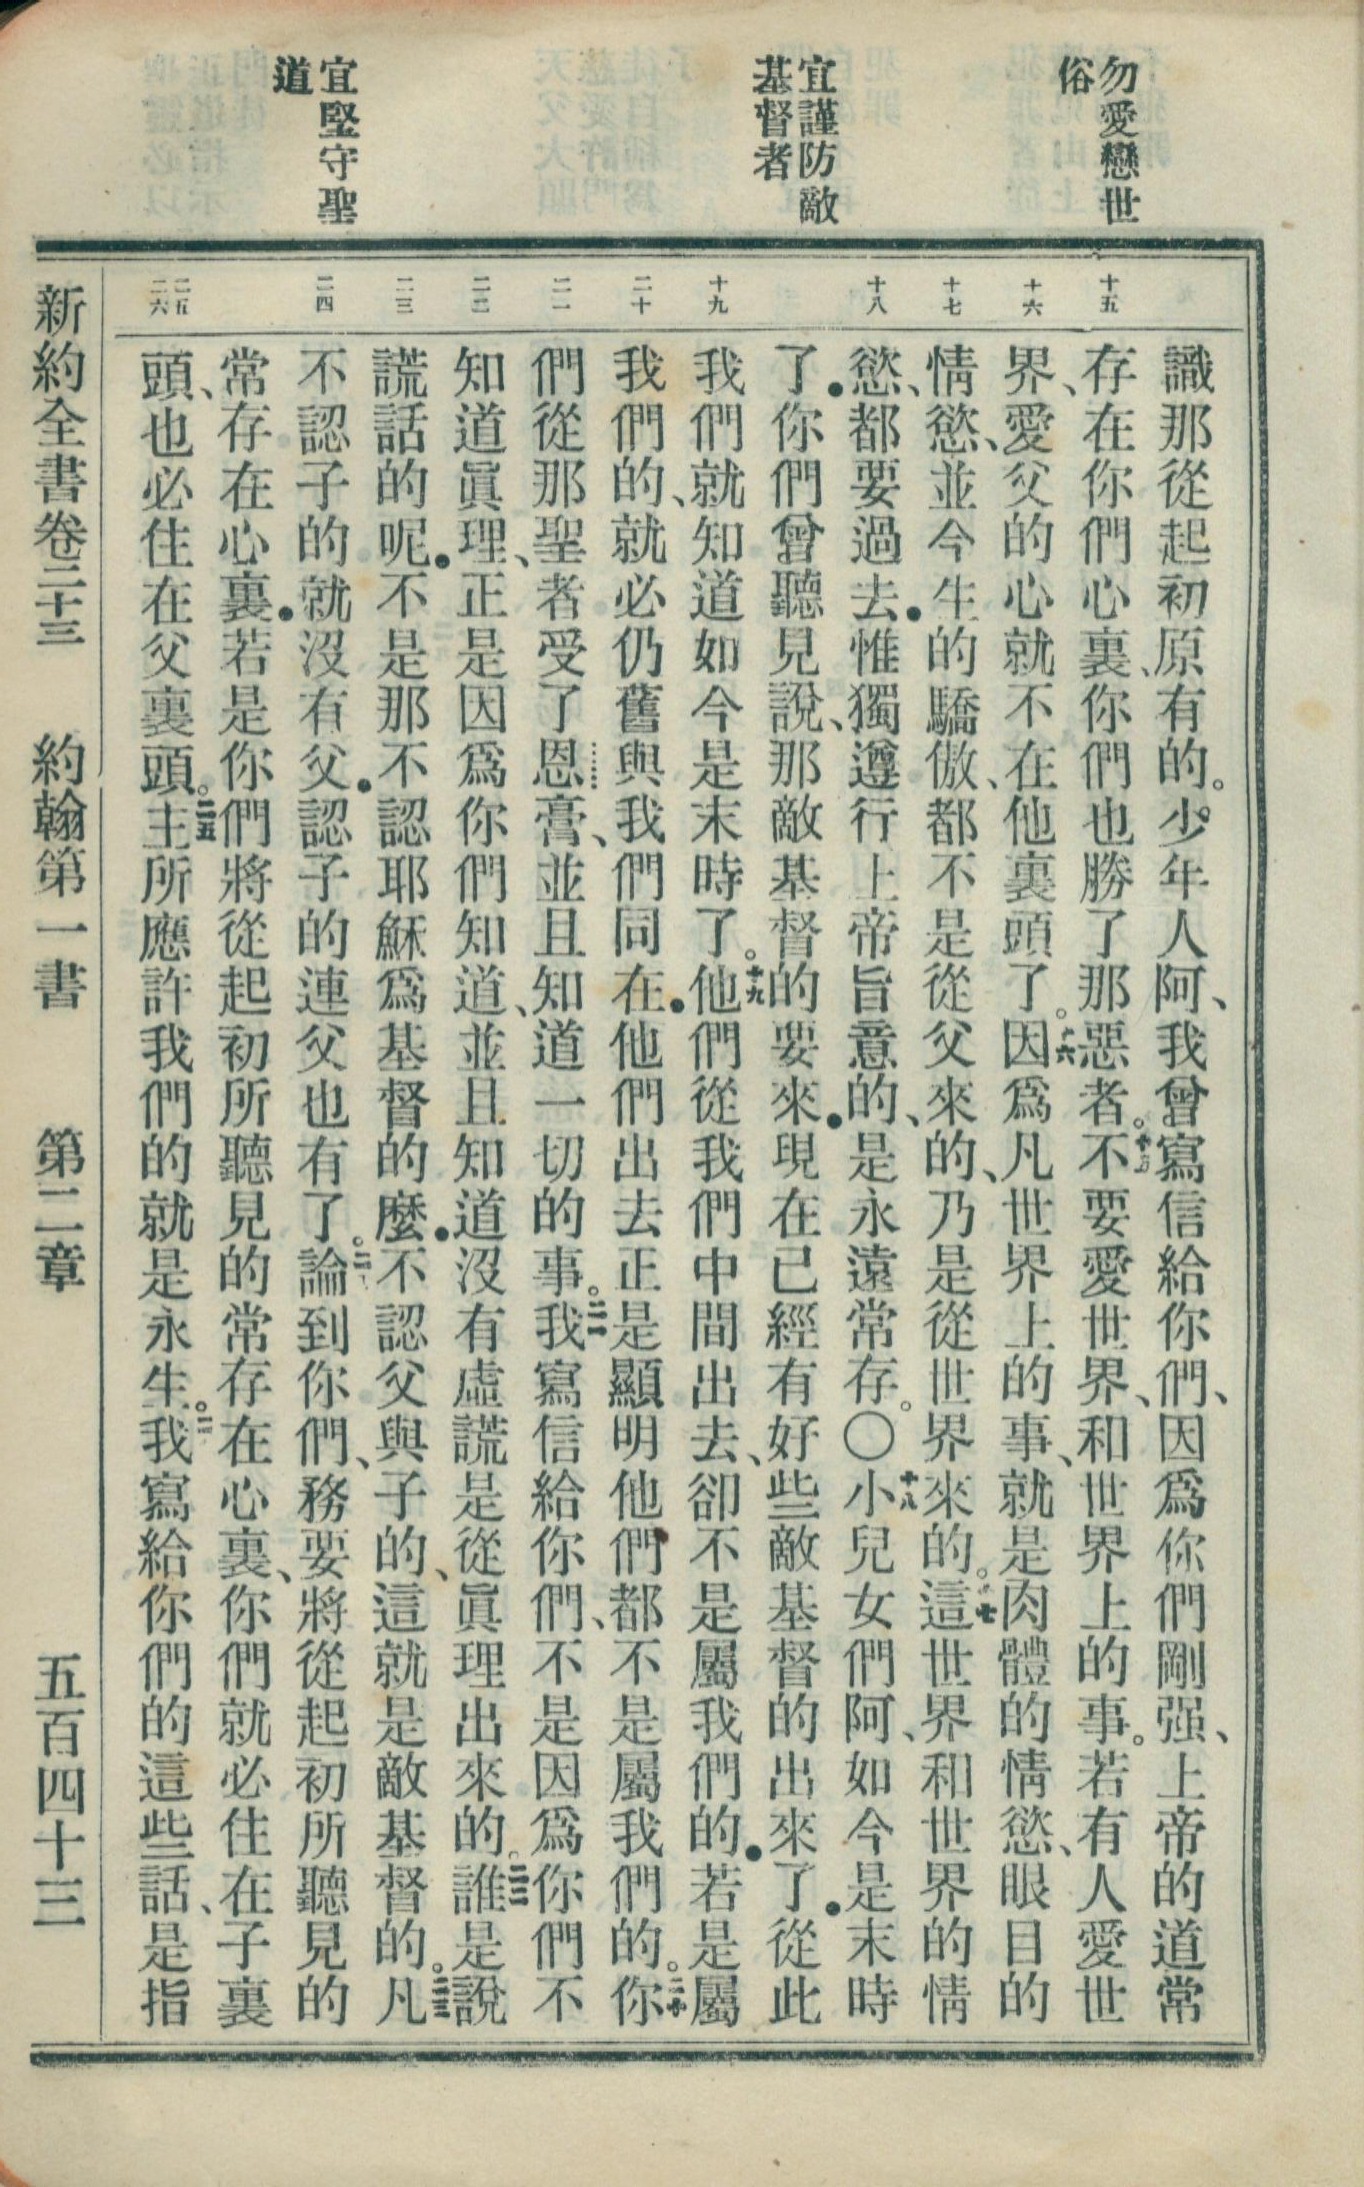 勿愛戀世
俗
宜謹防敵
基督者
宜堅守聖
道
十五
十六
十七
十八
十九
二十
二一
二二
二三
二四
二五
二六
識那從起初原有的。少年人阿、我曾寫信給你們、因爲你們剛强、上帝的道常
存在你們心裏、你們也勝了那惡者。十五不要愛世界、和世界上的事。若有人愛世
界、愛父的心就不在他裏頭了。十六因爲凡世界上的事、就是肉體的情慾、眼目的
情慾、並今生的驕傲、都不是從父來的、乃是從世界來的。十七這世界和世界的情
慾、都要過去●惟獨遵行上帝旨意的、是永遠常存。〇十八小兒女們阿、如今是末時
了●你們曾聽見說、那敵基督的要來●現在已經有好些敵基督的出來了●從此
我們就知道如今是末時了。十九他們從我們中間出去、卻不是屬我們的●若是屬
我們的、就必仍舊與我們同在●他們出去正是顯明他們都不是屬我們的。二十你
們從那聖者受了恩膏、並且知道一切的事。二一我寫信給你們、不是因爲你們不
知道眞理、正是因爲你們知道、並且知道沒有虛謊是從眞理出來的。二二誰是說
謊話的呢●不是那不認耶穌爲基督的麼●不認父與子的、這就是敵基督的。二三凡
不認子的就沒有父●認子的連父也有了。論到你們、務要將從起初所聽見的
常存在心裏●若是你們將從起初所聽見的常存在心裏、你們就必住在子裏
頭、也必住在父裏頭。二五主所應許我們的就是永生。我寫給你們的這些話、是指
新約全書卷二十三 約翰第一書 第二章 五百四十三